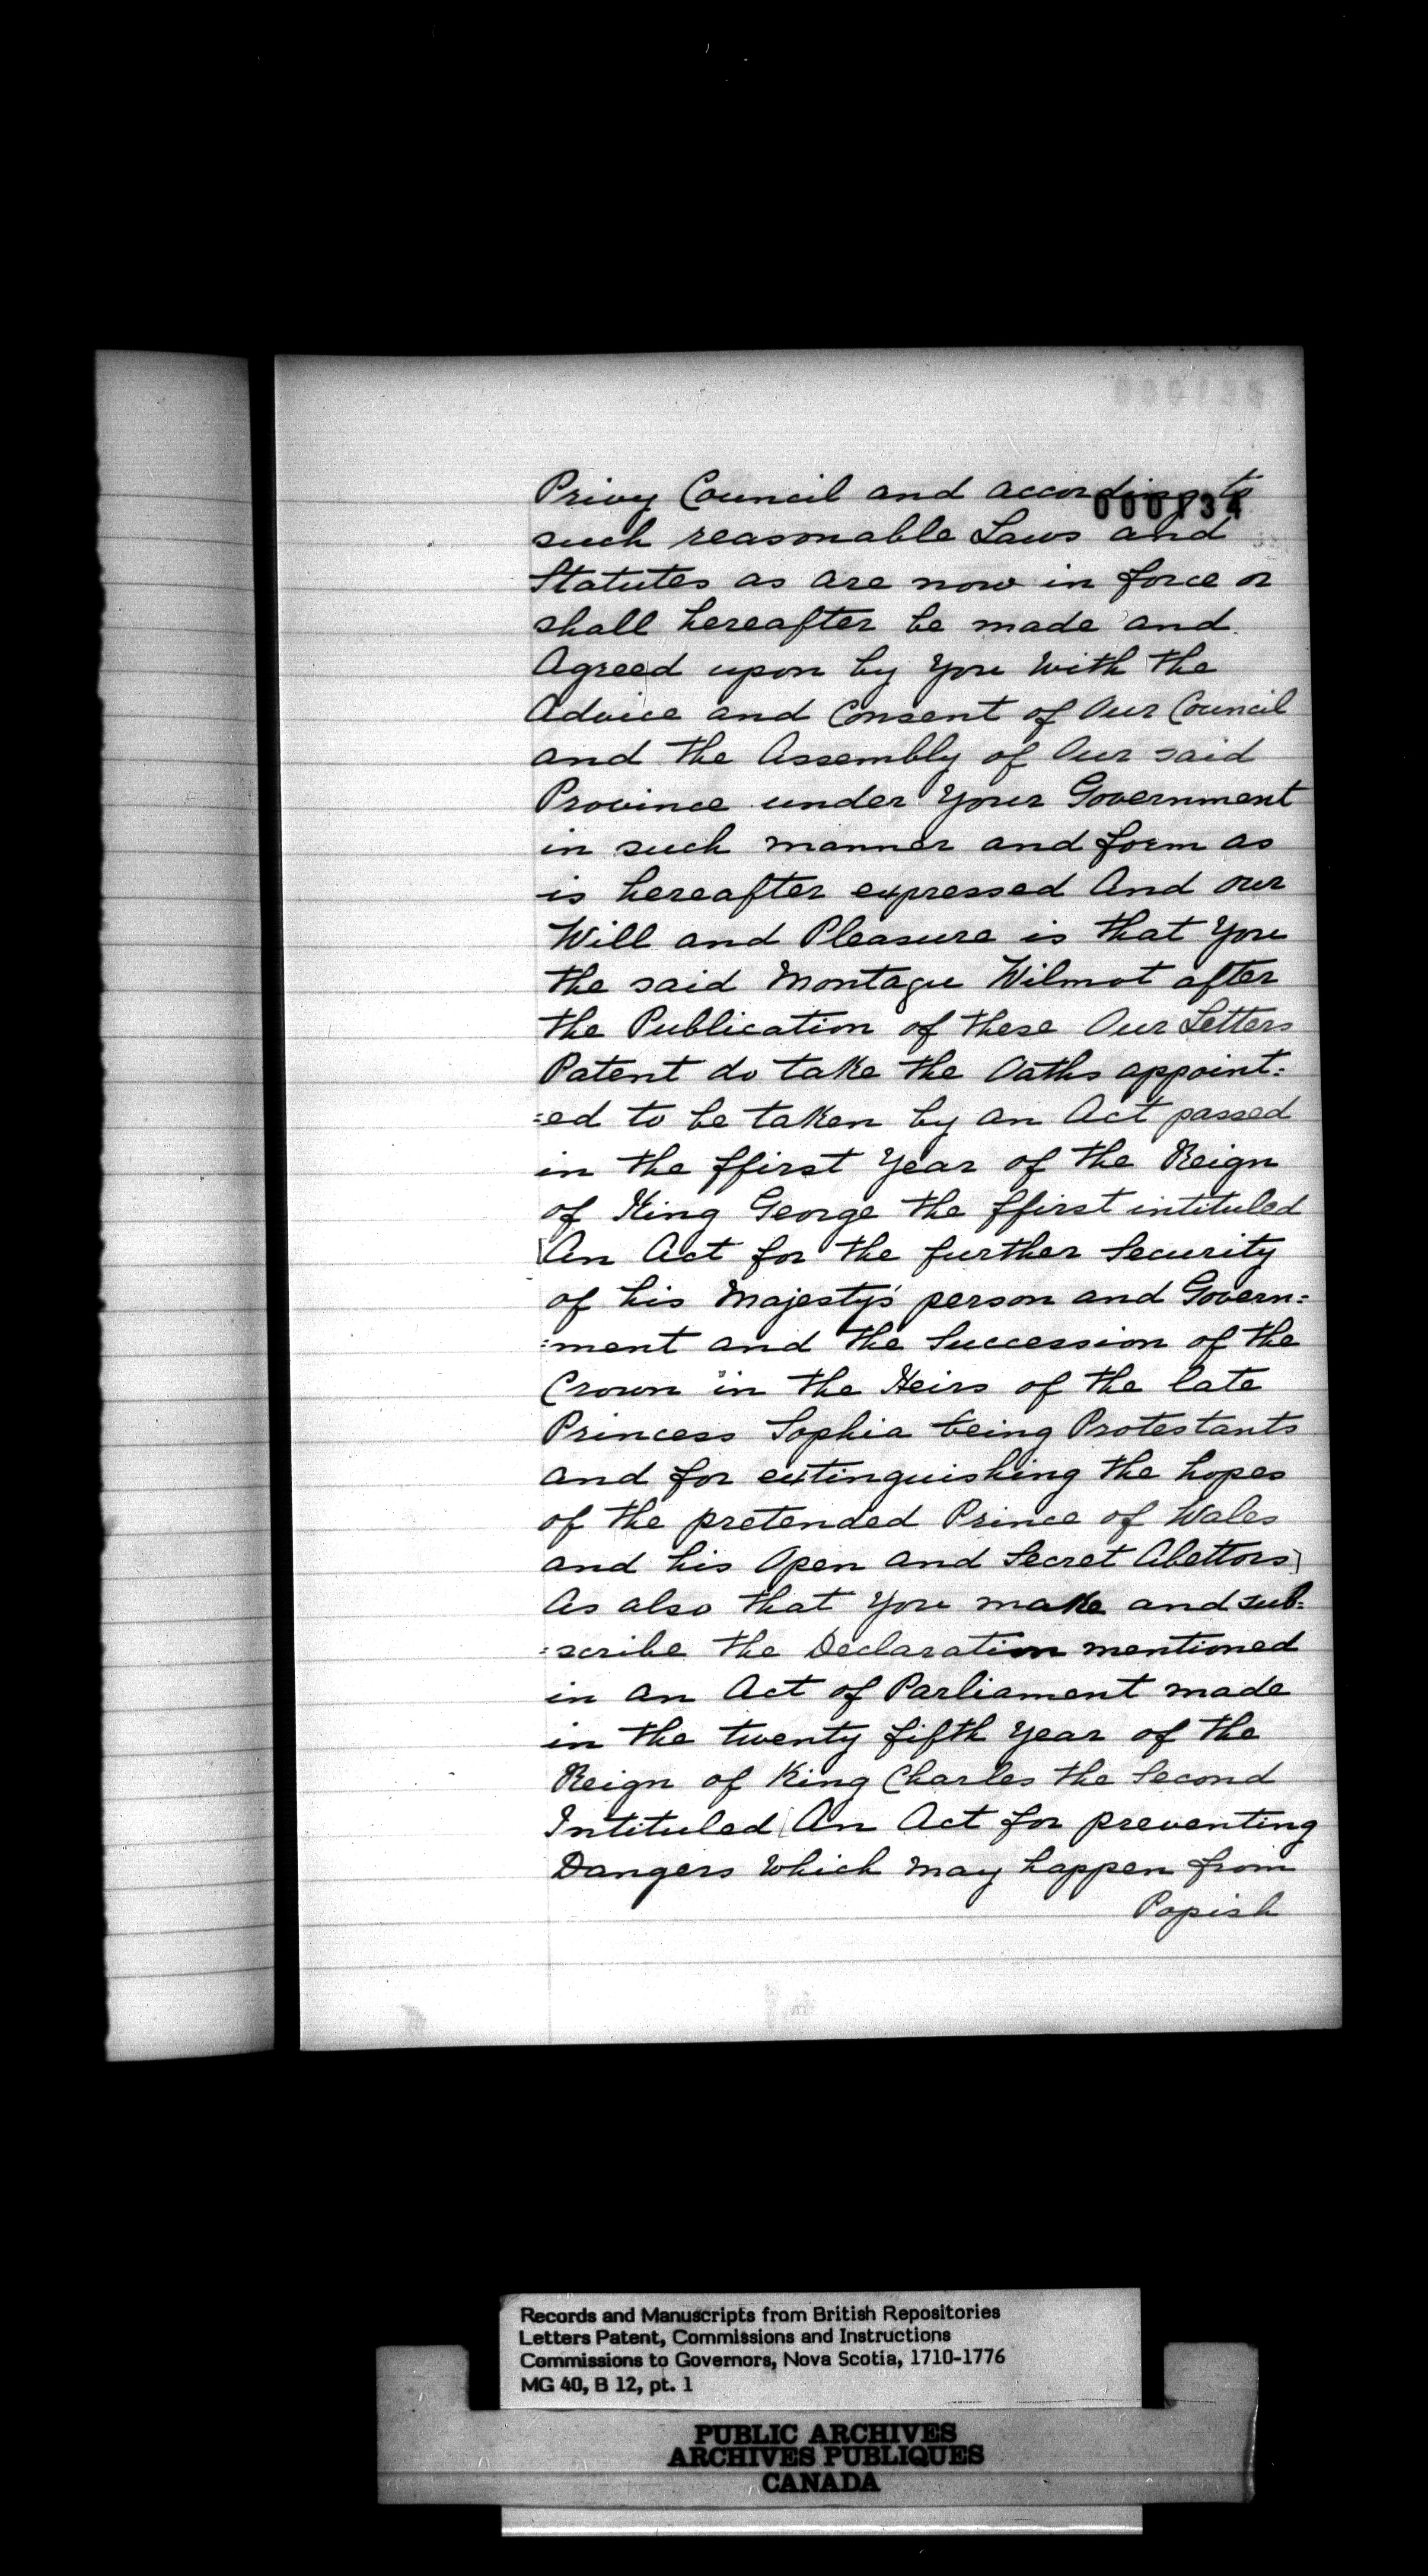 000135
Privy Council and according to
000134
such reasonable Laws and
Statutes as are now in force or
shall hereafter be made and
Agreed upon by You With the
Advice and Consent of Our Council
and the Assembly of Our said
Province under Your Government
in such manner and form as
is hereafter expressed And our
Will and Pleasure is that You
the said Montagu Wilmot after
the Publication of these Our Letters
Patent do take the Oaths appoint:
:ed to be taken by an Act passed
in the ffirst Year of the Reign
of King George the ffirst intituled
[An Act for the further Security
of his Majesty's person and Govern:
:ment and the Succession of the
Crown in the Heirs of the late
Princess Sophia being Protestants
and for extinguishing the hopes
of the pretended Prince of Wales
and his Open and Secret Abettors]
As also that You make and sub:
:scribe the Declaration mentioned
in an Act of Parliament made
in the twenty fifth Year of the
Reign of King Charles the Second
Intituled [An Act for preventing
Dangers Which may happen from
Popish
Records and Manuscripts from British Repositories
Letters Patent, Commissions and Instructions
Commissions to Governors, Nova Scotia, 1710-1776
MG 40, B 12, pt. 1
PUBLIC ARCHIVES
ARCHIVES PUBLIQUES
CANADA